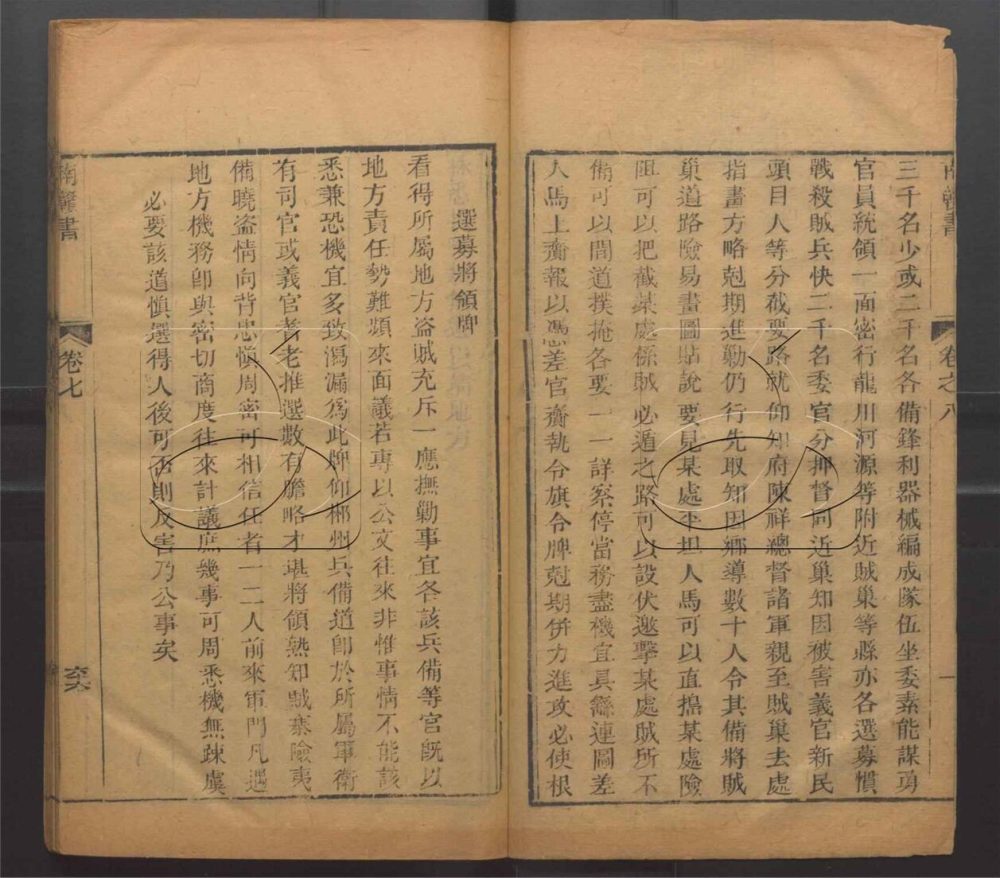 南贛書
卷之八
一
三千名少或二千名各備鋒利器械編成隊伍坐委素能謀勇
官員統領一面密行龍川河源等附近賊巢等縣亦各選募慣
戰殺賊兵快二千名委官分押督同近巢知因被害義官新民
頭目人等分截要路就仰知府陳祥總督諸軍親至賊巢去處
指畫方略尅期進勦仍行先取知因鄉導數十人令其備將賊
巢道路險易畫圖貼說要見某處平坦人馬可以直搗某處險
阻可以把截某處係賊必遁之路可以設伏邀擊某處賊所不
備可以間道撲掩各要一一詳察停當務盡機宜具繇連圖差
人馬上齎報以憑差官齎執令旗令牌尅期併力進攻必使根
選募將領牌
看得所屬地方盜賊充斥一應撫勦事宜各該兵備等官旣以
地方責任勢難頻來面議若專以公文往來非惟事情不能該
悉兼恐機宜多致漏泄爲此牌仰郴州兵備道卽於所屬軍衛
有司官或義官耆老推選數有膽略才堪將領熟知賊寨險夷
備曉盜情向背忠慎周密可相信任者一二人前來軍門凡遇
地方機務卽與密切商度往來計議庶幾事可周悉機無疎虞
必要該道愼選得人後可否則反害乃公事矣
南贛書
卷七